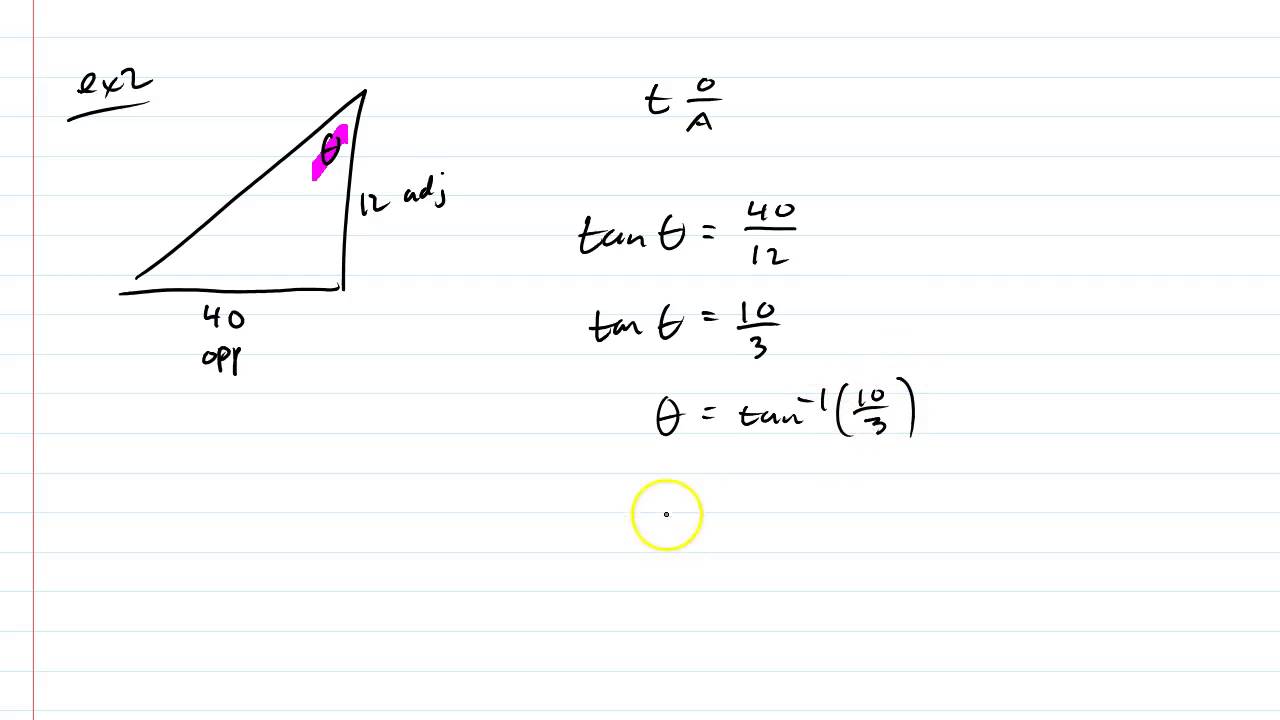 ex2
θ
12 adj
40
opp
t O/A
tan θ = 40/12
tan θ = 10/3
θ = tan⁻¹(10/3)